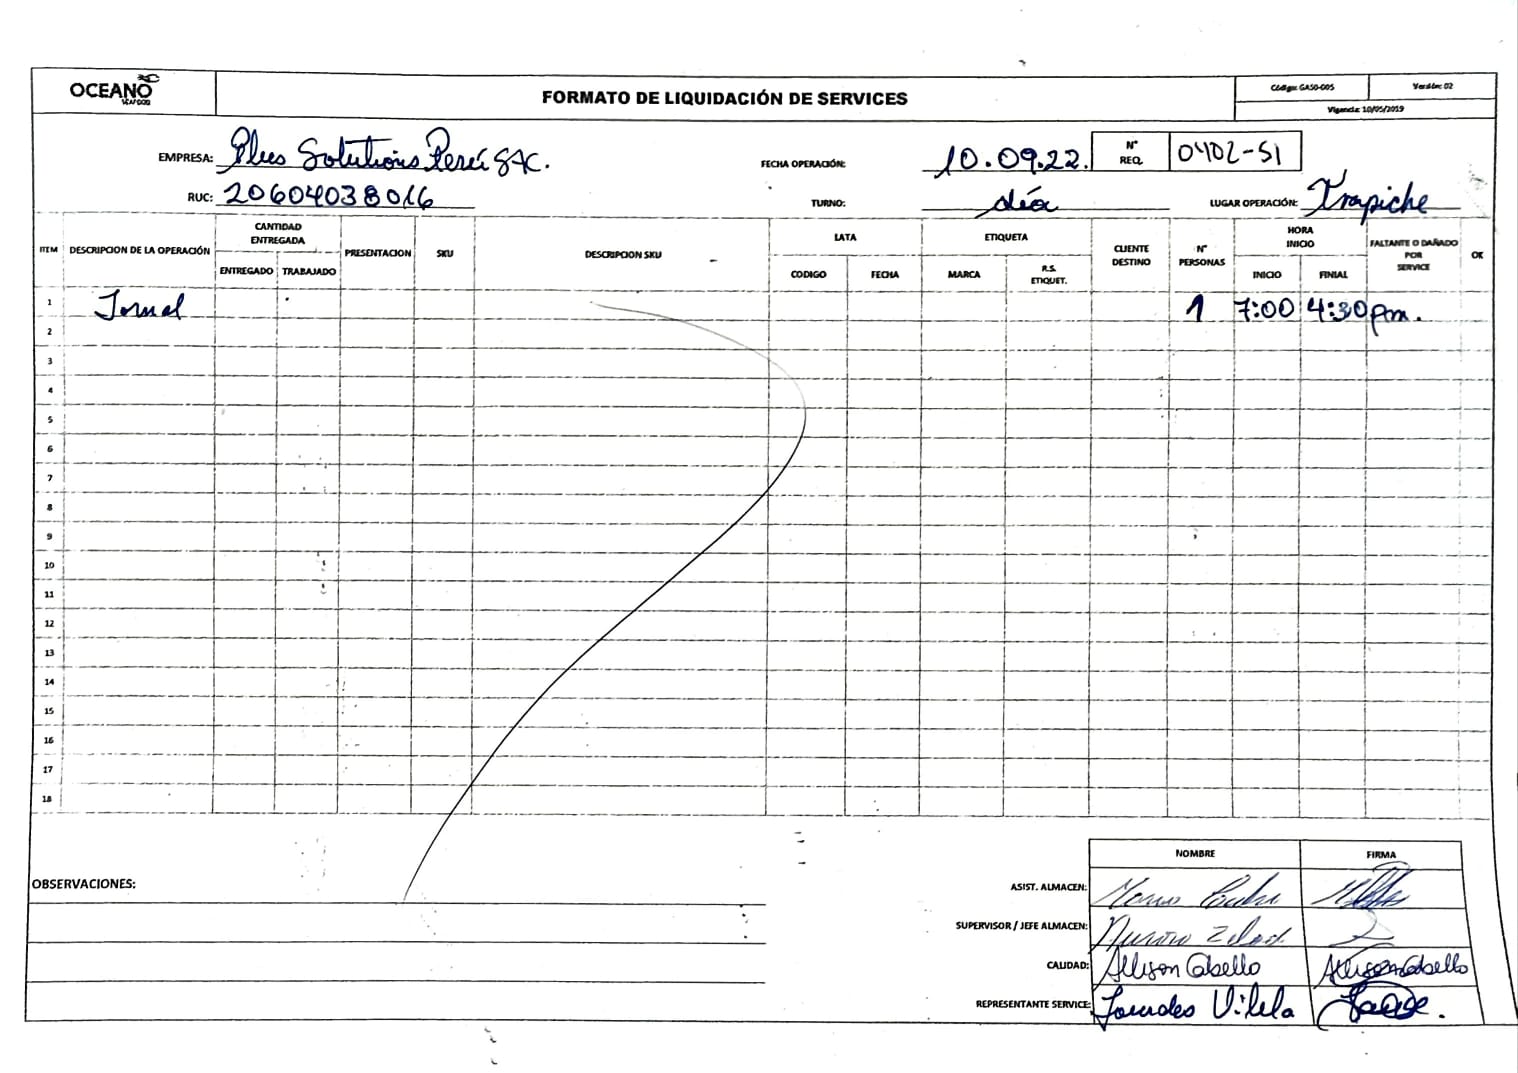 OCEANO
SEAFOOD
FORMATO DE LIQUIDACIÓN DE SERVICES
Código: GASO-005
Versión: 02
Vigencia: 10/05/2019
EMPRESA: Plus Solutions Perú SAC.
FECHA OPERACIÓN: 10.09.22.
N° REQ. 0402-S1
RUC: 20604038016
TURNO: día
LUGAR OPERACIÓN: Trapiche
ITEM
DESCRIPCION DE LA OPERACIÓN
CANTIDAD ENTREGADA
ENTREGADO
TRABAJADO
PRESENTACION
SKU
DESCRIPCION SKU
LATA
CODIGO
FECHA
ETIQUETA
MARCA
R.S. ETIQUET.
CLIENTE DESTINO
N° PERSONAS
HORA INICIO
INICIO
FINIAL
FALTANTE O DAÑADO POR SERVICE
OK
1 Jornal 1 7:00 4:30pm.
2
3
4
5
6
7
8
9
10
11
12
13
14
15
16
17
18
OBSERVACIONES:
NOMBRE
FIRMA
ASIST. ALMACEN:
SUPERVISOR / JEFE ALMACEN:
CALIDAD: Allison Cabello Allison Cabello
REPRESENTANTE SERVICE: Lourdes Vilela